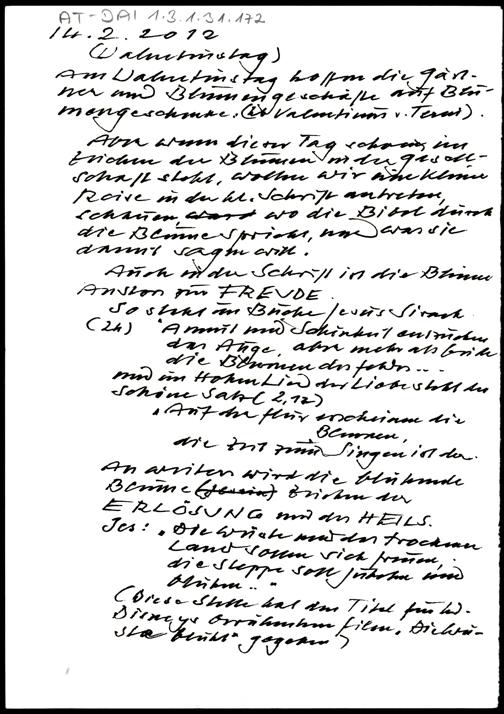 AT-DAI 1.3.1.31.172
14.2.2012
(Valentinstag)
Am Valentinstag hoffen die Gärt-
ner und Blumengeschäfte auf Blu-
mengeschenke. (Valentinus v. Terni).
Aber wenn dieser Tag schon im
Zeichen der Blumen in der Gesell-
schaft steht, wollen wir eine kleine
Reise in der hl. Schrift antreten,
schauen, wo die Bibel durch
die Blume spricht, und was sie
damit sagen will.
Auch in der Schrift ist die Blume
Anstoß zur FREUDE.
So steht im Buche Jesus Sirach
(24) "Anmut und Schönheit entzücken
das Auge, aber mehr als beide
die Blumen des Feldes...
und im Hohen Lied der Liebe steht der
schöne Satz (2,12)
"Auf der Flur erscheinen die
Blumen,
die Zeit zum Singen ist da.
Am weiten wird die blühende
Blume Zeichen der
ERLÖSUNG und des HEILS.
Jes: "Die Wüste und das trockene
Land sollen sich freuen,
die Steppe soll jubeln und
blühen.."
(Diese Stelle hat den Titel für W.
Disneys berühmten Film "Die Wü-
ste blüht" gegeben)